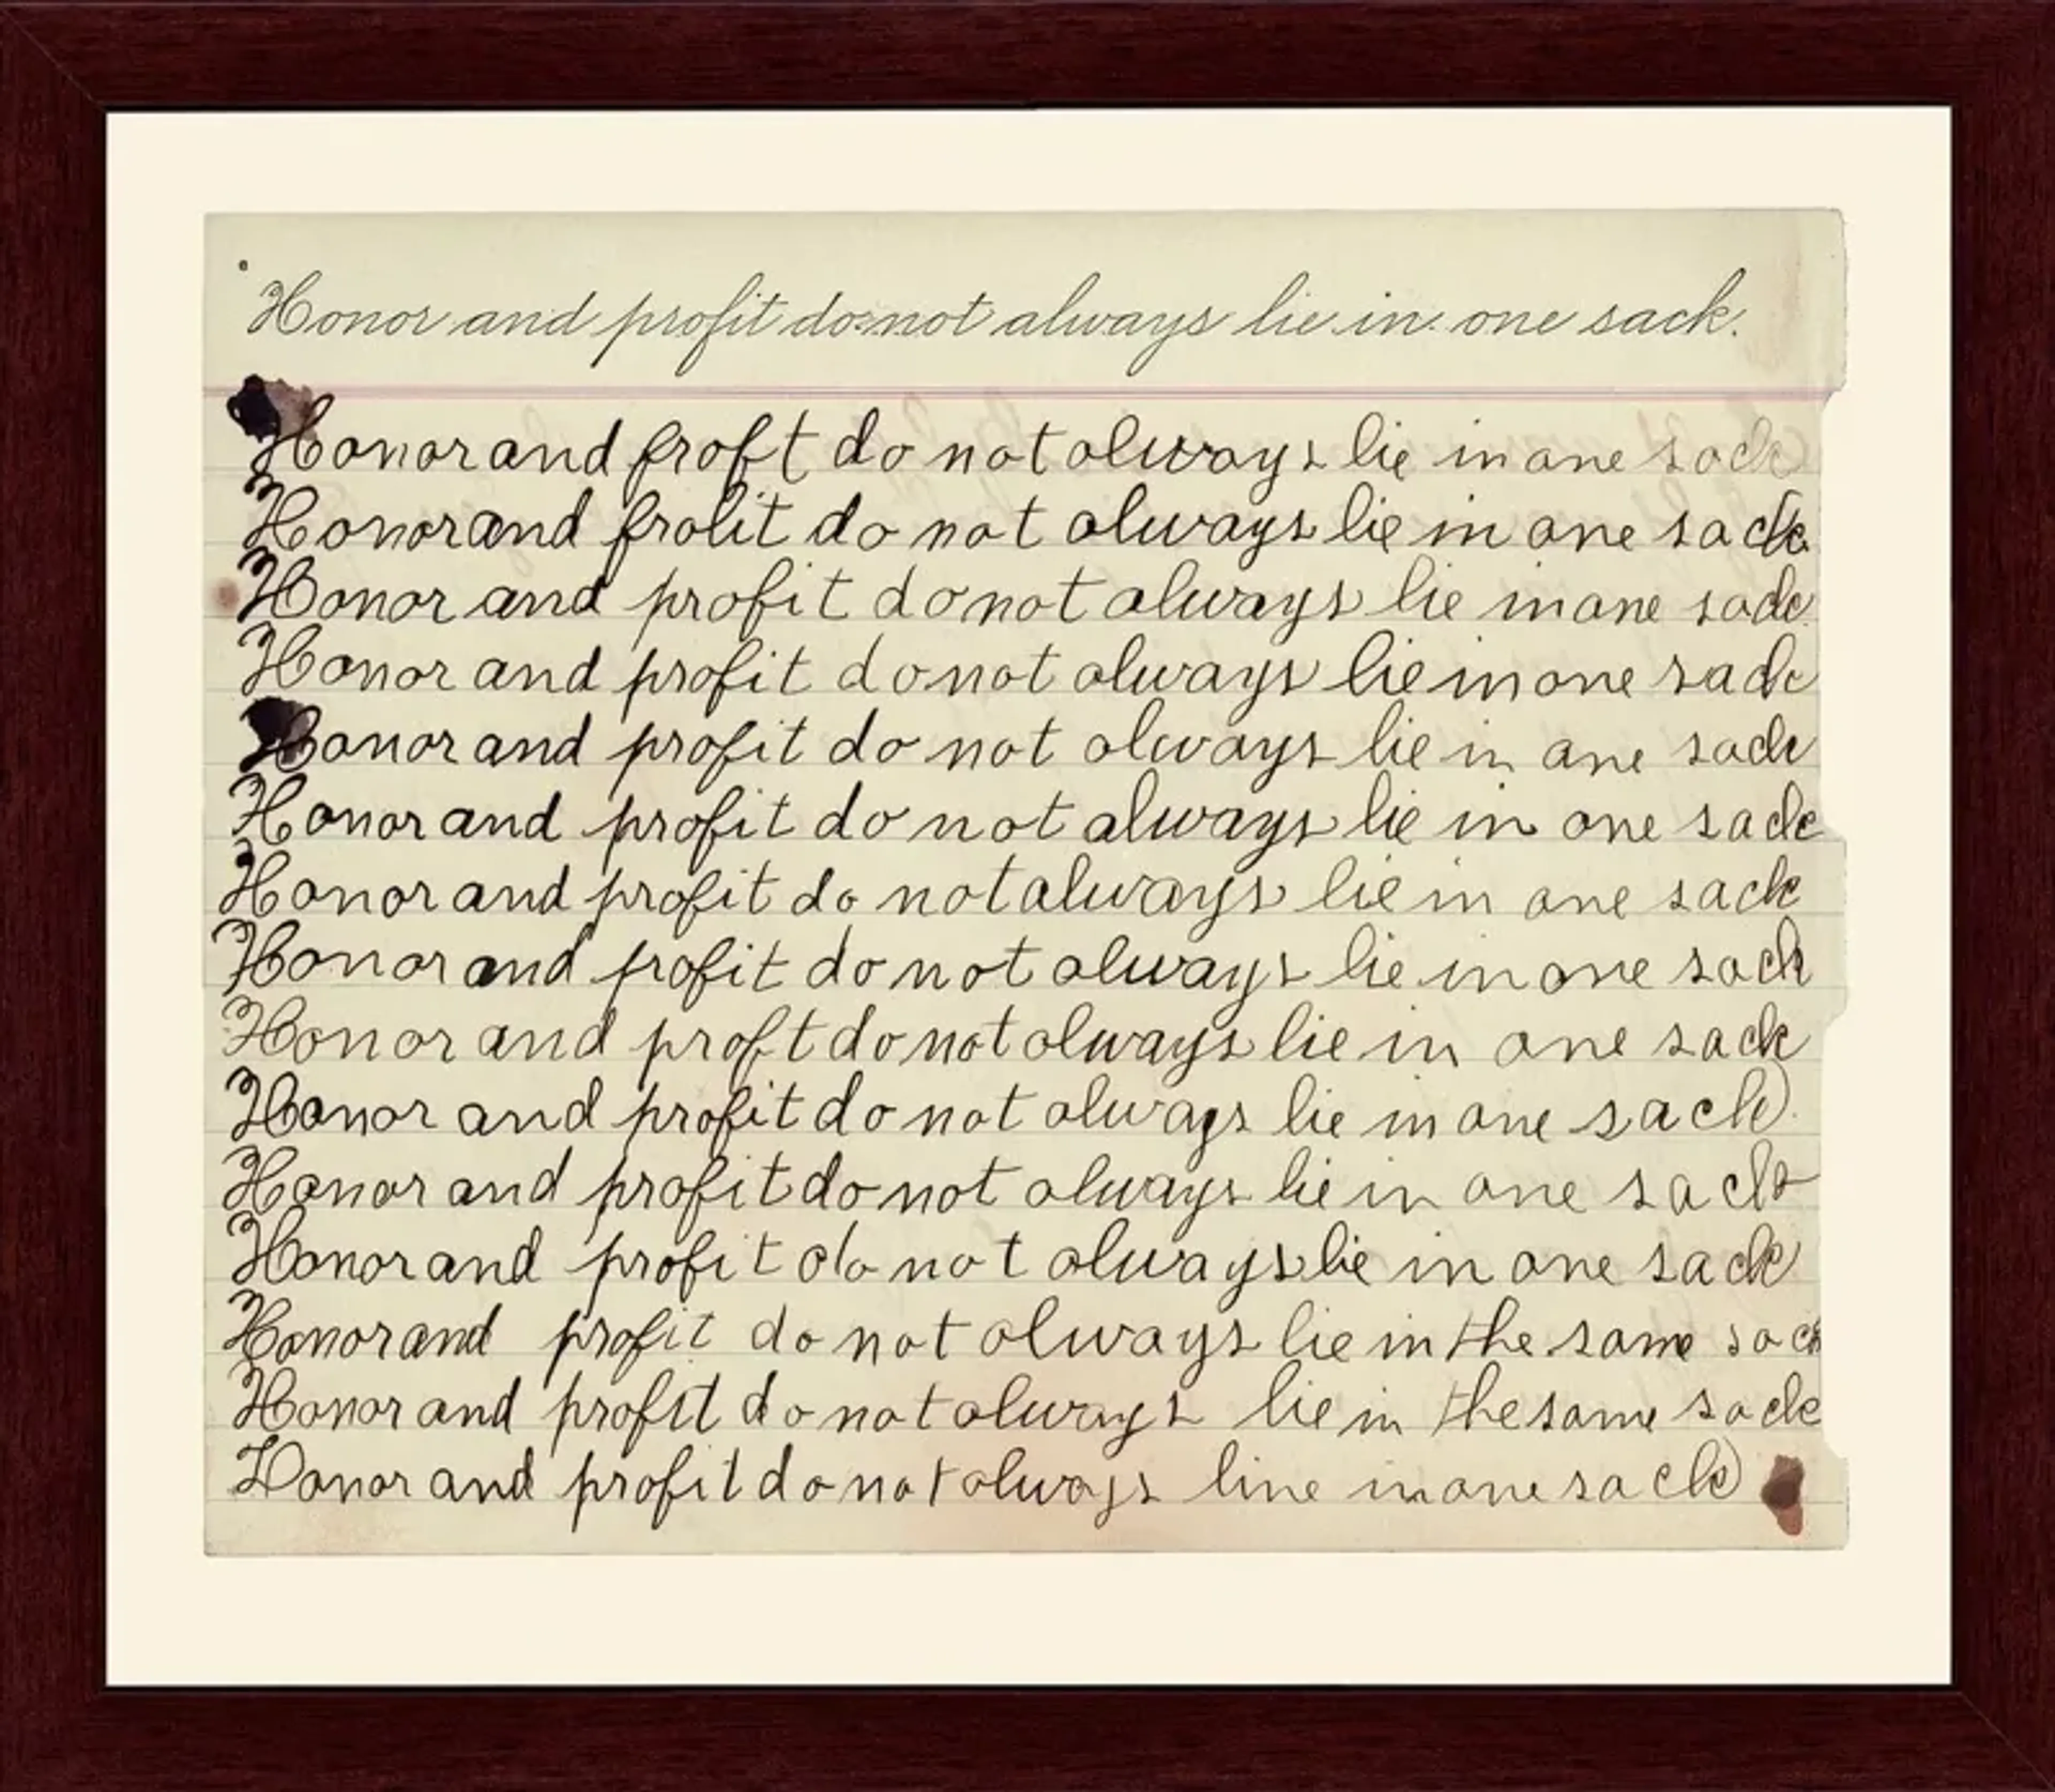 Honor and profit do not always lie in one sack.
Honor and proft do not always lie in one sack
Honor and prolit do not always lie in one sack
Honor and profit do not always lie in one sack
Honor and profit do not always lie in one sack
Honor and profit do not always lie in one sack
Honor and profit do not always lie in one sack
Honor and profit do not always lie in one sack
Honor and profit do not always lie in one sack
Honor and proft do not always lie in one sack
Honor and profit do not always lie in one sack
Honor and profit do not always lie in one sack
Honor and profit do not always lie in one sack
Honor and profit do not always lie in the same sack
Honor and profit do not always lie in the same sack
Honor and profit do not always line in one sack